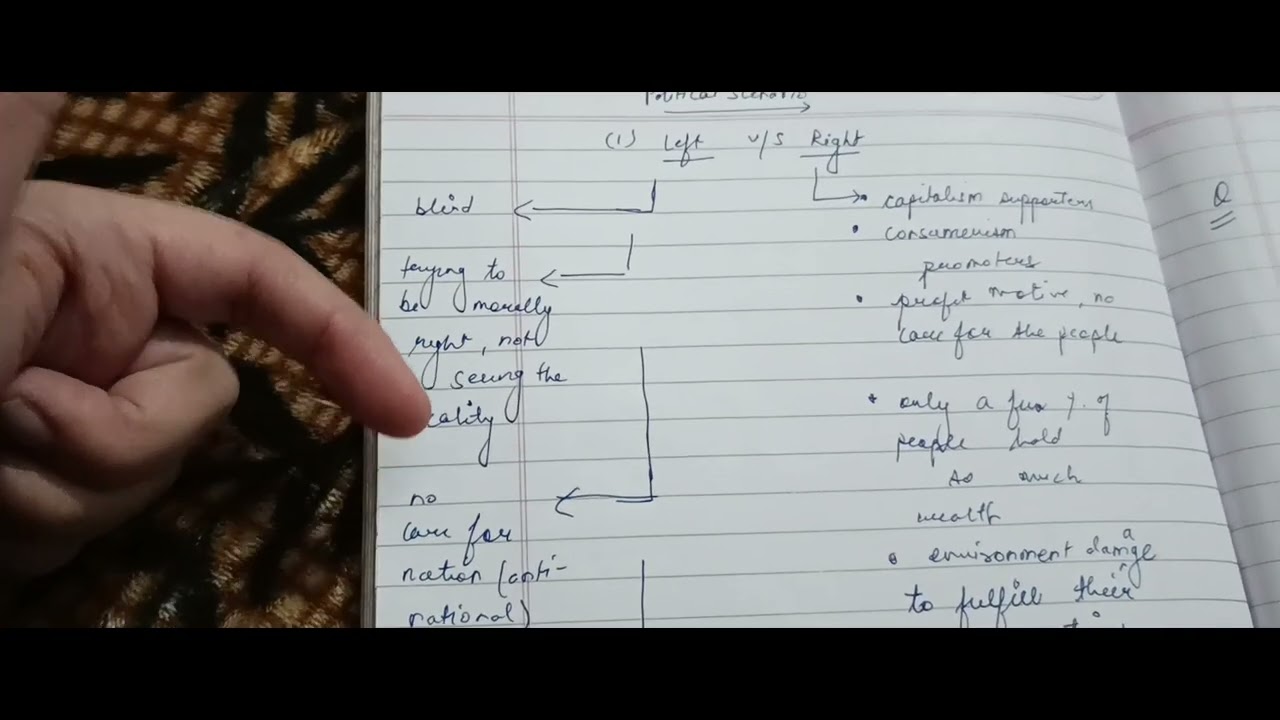 Political Scenario
(1) Left v/s Right
blind
trying to
be morally
right, not
seeing the
eality
no
care for
nation (anti-
national)
• capitalism supporters
• consumerism
promoters
• profit motive, no
care for the people
• only a few % of
people hold
so much
wealth
• environment damage
to fulfill their
Q